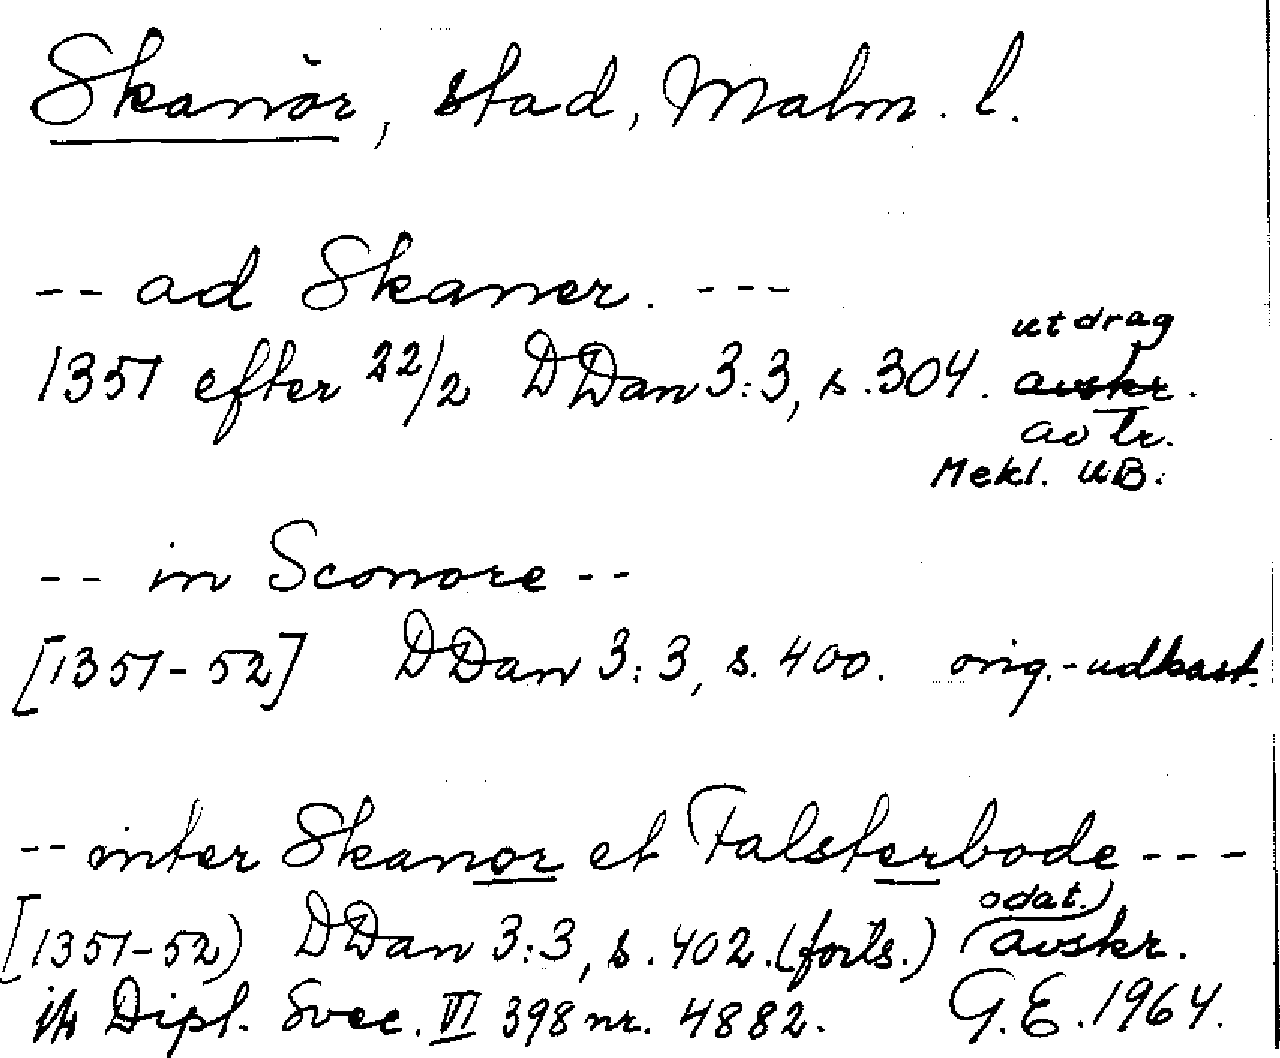 Skanör, stad, Malm. l.
-- ad Skaner. ---
utdrag
1351 efter 22/2 DDan 3:3, s. 304. avskr.
av tr.
Mekl. UB.
-- in Sconore --
[1351-52] DDan 3:3, s. 400. orig.-udkast.
-- inter Skanor et Falsterbode ---
odat.)
[1351-52) DDan 3:3, s. 402. (forts.) (avskr.
Dipl. Svec. VI 398 nr. 4882. G.E. 1964.